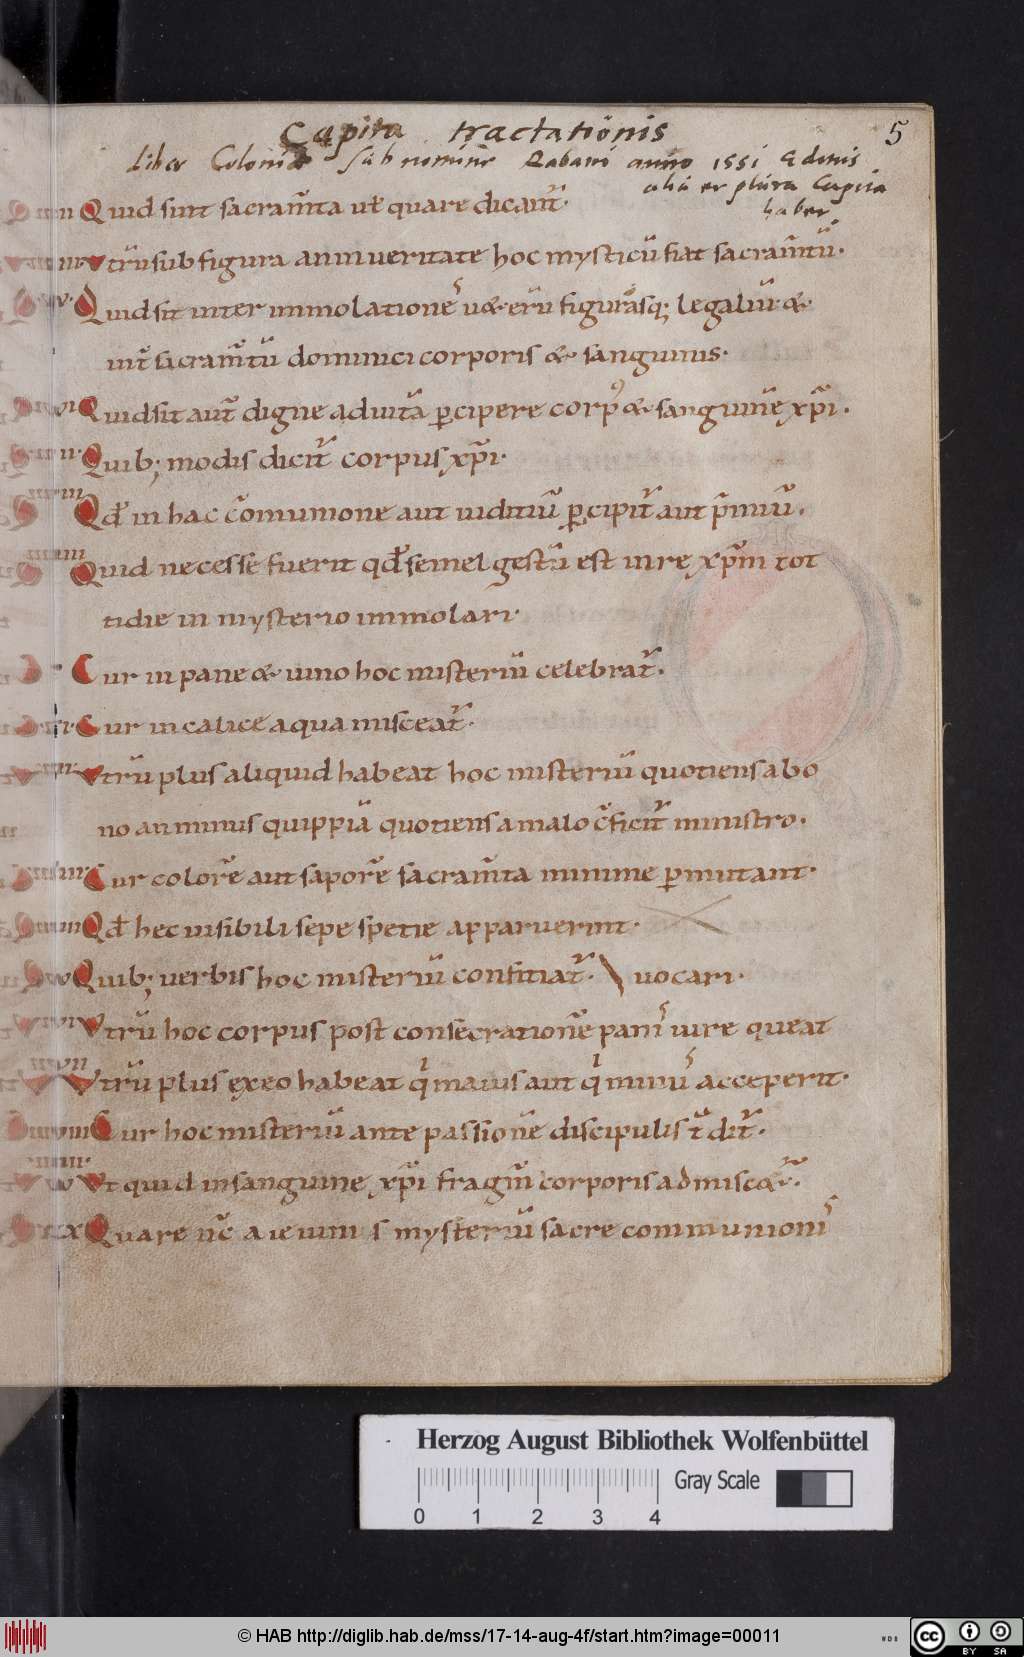 Capita tractationis
5
Liber Coloniae sub nomine Rabani anno 1551 Editus
alia et plura Capita
habet
Quid sunt sacram̄ta uel quare dicant᷑.
Vtrū sub figura an in ueritate hoc mysticū fiat sacram̄tū.
Quid sit inter immolationes ueterū figurasq; legaliū &
int̄ sacram̄tū dominici corporis & sanguinis.
Quid sit aut̄ digne ad uitā ꝑcipere corpꝰ & sanguinē xp̄i.
Quib; modis dicit᷑ corpus xp̄i.
Qd̄ in hac cōmunione aut iuditiū ꝑcipit᷑ aut p̄miū.
Quid necesse fuerit qd̄ semel gestū est in re xp̄m tot
tidie in mysterio immolari.
Cur in pane & uino hoc misteriū celebrat᷑.
Cur in calice aqua misceat᷑.
Vtrū plus aliquid habeat hoc misteriū quotiens a bo
no an minus quippiā quotiens a malo c̄ficit᷑ ministro.
Cur colorē aut saporē sacram̄ta minime ꝑmutant.
Qd̄ hec uisibili sepe spetie apparuerint.
Quib; uerbis hoc misteriū confitiat᷑. uocari.
Vtrū hoc corpus post consecrationē panis iure queat
Vtrū plus ex eo habeat qi maius aut qi minus acceperit.
Cur hoc misteriū ante passionē discipulis t̄dit᷑.
Vt quid in sanguine xp̄i fragm̄ corporis admiscet᷑.
Quare nc̄ a ieiunis mysteriū sacre communionis
Herzog August Bibliothek Wolfenbüttel
Gray Scale
0 1 2 3 4
© HAB http://diglib.hab.de/mss/17-14-aug-4f/start.htm?image=00011
WDB
cc
BY SA